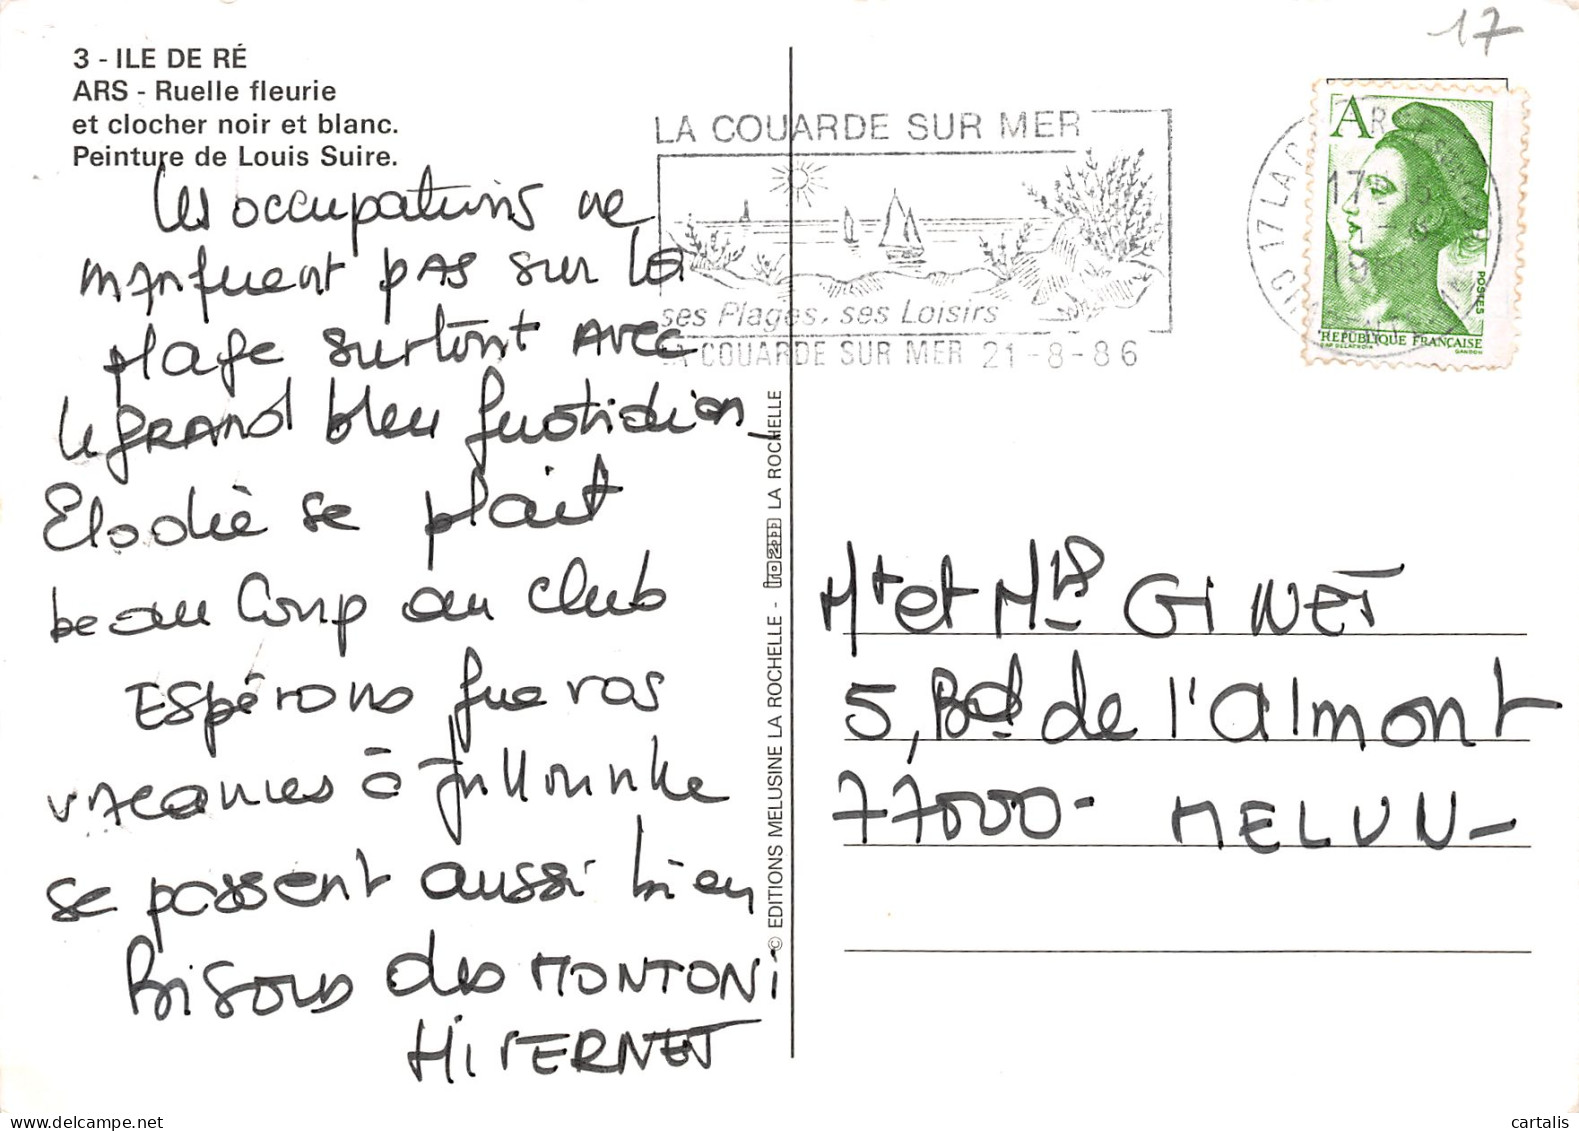 3 - ILE DE RÉ
ARS - Ruelle fleurie
et clocher noir et blanc.
Peinture de Louis Suire.
Les occupations ne
manquent pas sur la
plage surtout avec
le grand bleu quotidien
Elodie se plait
beau coup au club
Espérons que vos
vacances à Jullouville
se passent aussi bien
Bisous des MONTONI
HIVERNET
© EDITIONS MELUSINE LA ROCHELLE - LA ROCHELLE
17
LA COUARDE SUR MER
ses Plages, ses Loisirs
LA COUARDE SUR MER 21-8-86
A
POSTES
RÉPUBLIQUE FRANÇAISE
GANDON
Mr et Mme GINET
5, Bd de l'almont
77000 - MELUN -
cartalis
www.delcampe.net